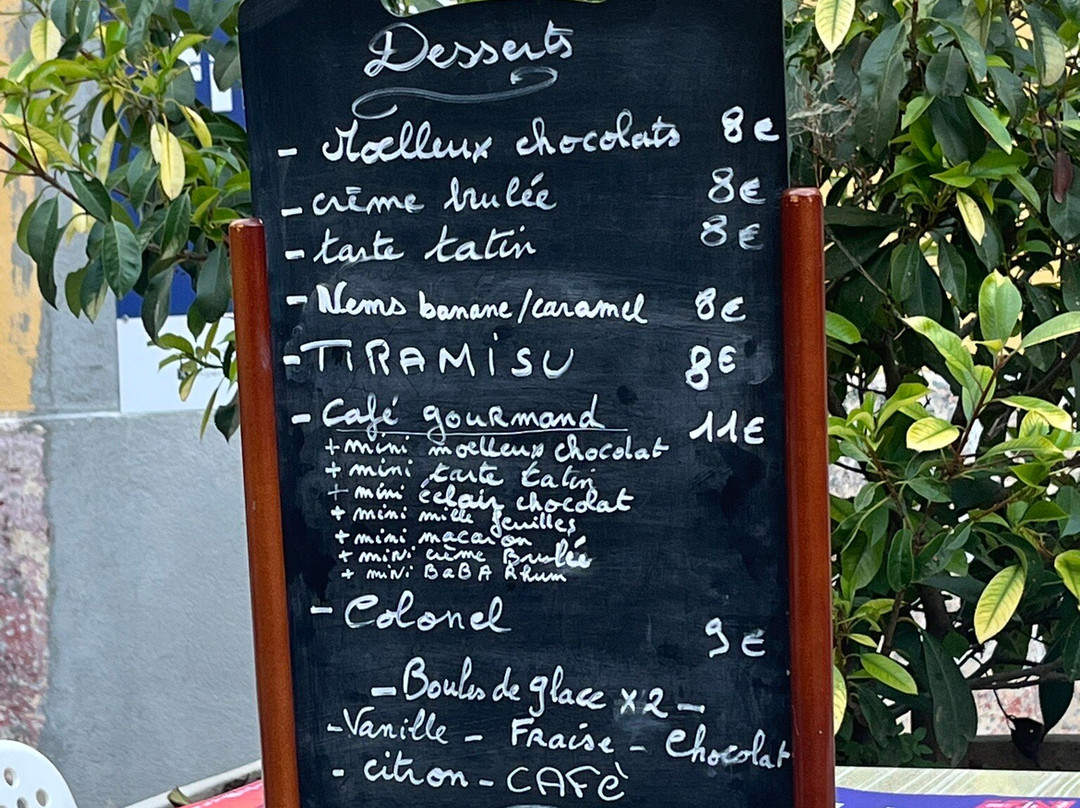 Desserts
- Moelleux chocolats 8€
- crème brulée 8€
- tarte tatin 8€
- Nems banane/caramel 8€
- TIRAMiSU 8€
- Café gourmand 11€
+ mini moelleux chocolat
+ mini tarte tatin
+ mini éclair chocolat
+ mini mille feuilles
+ mini macaron
+ mini crème Brulée
+ mini BaBA Rhum
- Colonel 9€
- Boules de glace x2 -
- Vanille - FRaise - Chocolat
- citron - CAFè